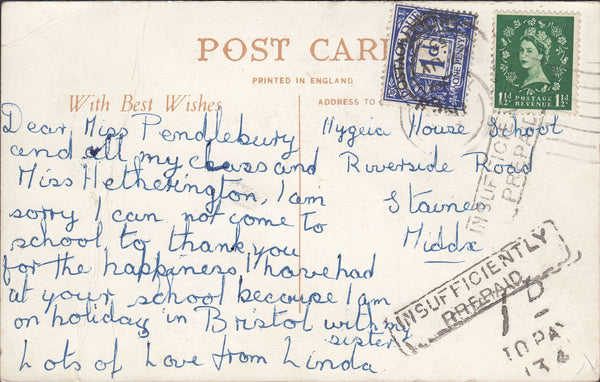 POST CARD
PRINTED IN ENGLAND
With Best Wishes
ADDRESS TO
Dear Miss Pendlebury
and all my class and
Miss Hetherington, I am
sorry I can not come to
school to thank you
for the happiness I have had
at your school because I am
on holiday in Bristol with my
sister
Lots of Love from Linda
Hygeia House School
Riverside Road
Staines
Middx
POSTAGE DUE
1d
ONE PENNY
1½d POSTAGE REVENUE 1½d
INSUFFICIENTLY
PREPAID
INSUFFICIENTLY
PREPAID
1D
TO PAY
134